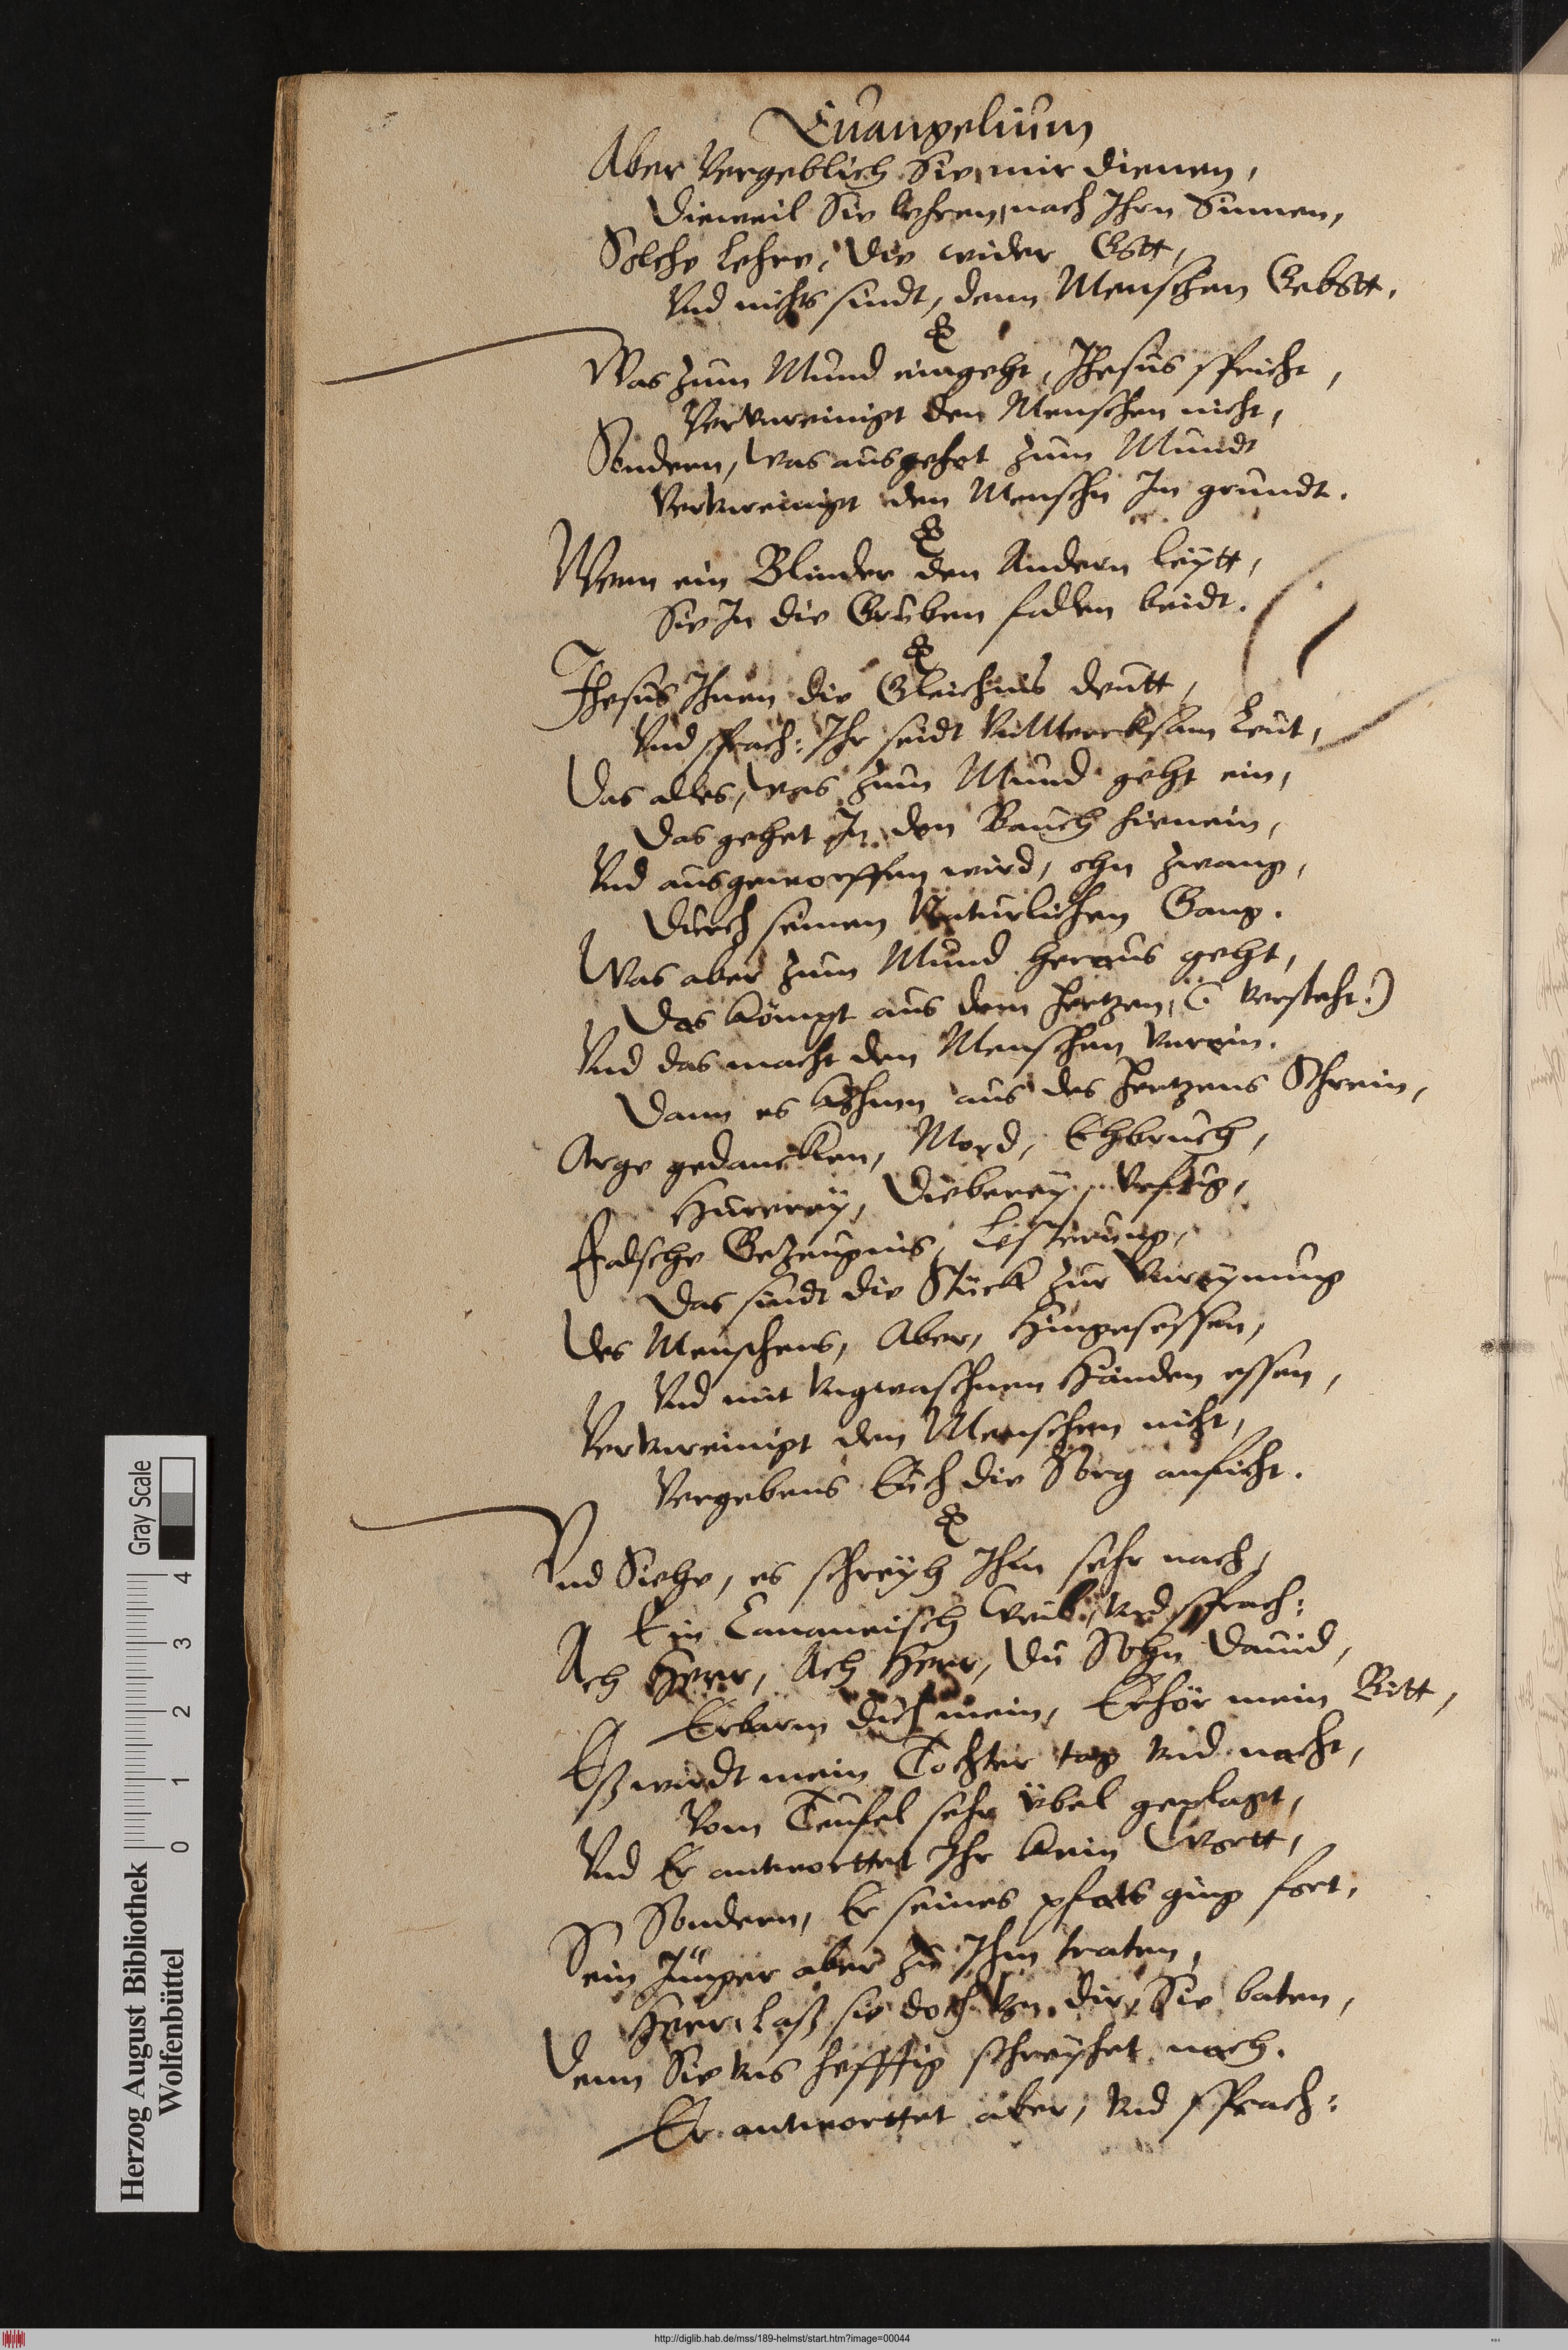 Euangelium
Aber Vergeblich Sie mir dienen,
Dieweil Sie lehren, nach Ihrn Sinnen,
Solche Lehre, die wider Gott,
Vnd nichts sindt, denn Menschen Gebott.
Was zum Mund eingeht, Jhesus spricht,
Vervnreinigt den Menschen nicht,
Sondern, was ausgehet zum Mundt
Vervnreinigt den Menschn Im grundt.
Wenn ein Blinder den Andern leÿtt,
Sie In die Gruben fallen beidt.
Jhesus Ihnen die Gleichnis deutt,
Vnd sprach: Ihr seidt Leut,
Das alles, was zum Mund geht ein,
Das gehet In den Bauch hienein,
Vnd ausgeworffen wird, ohn zwang,
Durch seinen Naturlichen Gang.
Was aber zum Mund heraus geht,
Das kömpt aus dem Hertzen, (: versteht:)
Vnd das macht den Menschen vnrein.
Dann es kohmen aus des Hertzens Schrein,
Arge gedancken, Mord, Ehbruch,
Hurereÿ, Diebereÿ,
Falsche Gezeugnis, Lesterung,
Das sindt die Stück zur Vnreÿnung
Des Menschens, Aber, Hingesessen,
Vnd mit vngwaschnen Händen essen,
Vervnreinigt den Menschen nicht,
Vergebens Euch die Sorg anficht.
Vnd Siehe, es schreÿh Ihm sehr nach,
Ein Cananeisch Weib, vnd sprach:
Ach Herr, Ach Herr, du Sohn Dauid,
Erbarm dich mein, Erhör mein Bitt,
Eß wirdt mein Tochter tag vnd nacht,
Vom Teufel sehr übel geplagt,
Vnd Er antworttet Ihr kein Wortt,
Sondern, Er seines pfats ging fort,
Sein Jünger aber zu Ihm traten,
Herr, laß sie doch von dir, Sie baten,
Denn Sie vns hefftig schreÿhet nach.
Er antworttet aber, vnd sprach:
Herzog August Bibliothek
Wolfenbüttel
Gray Scale
0 1 2 3 4
http://diglib.hab.de/mss/189-helmst/start.htm?image=00044